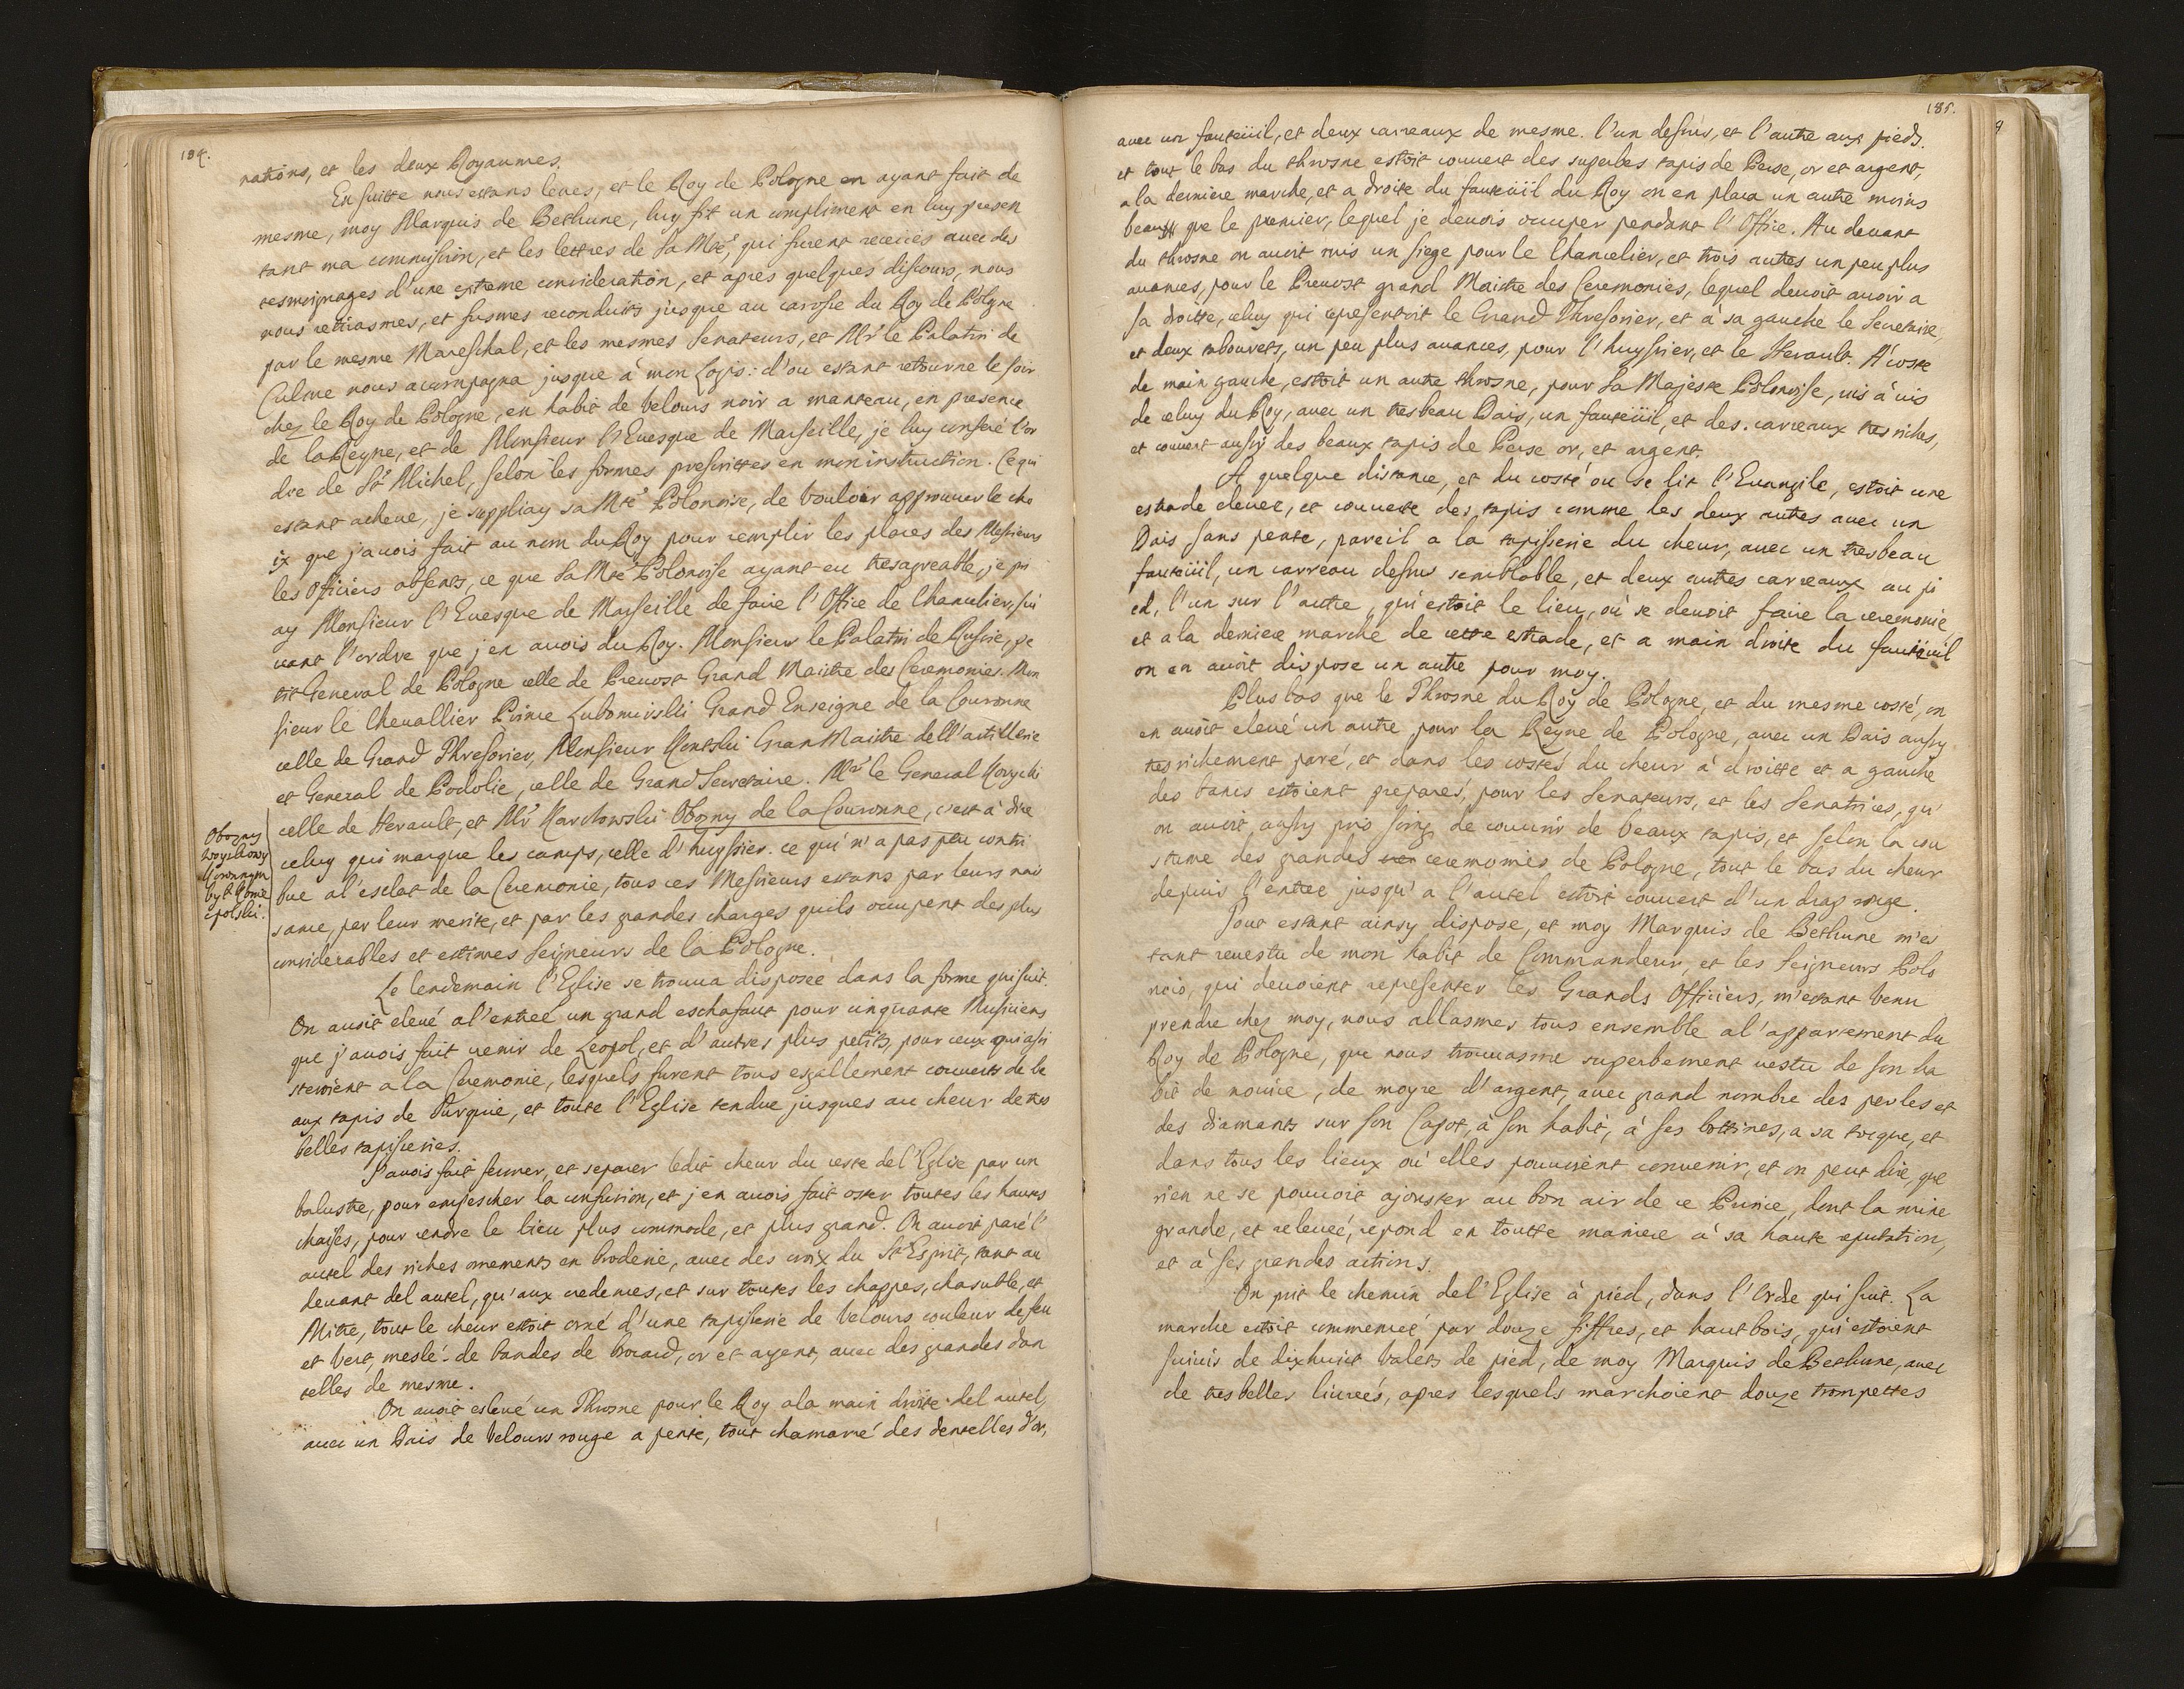 184.
nations, et les deux Royaumes.
Ensuitte nous estans leues, et le Roy de Pologne en ayant fait de
mesme, moy Marquis de Bethune, luy fit un compliment en luy presen
tant ma commission, et les lettres de Sa Mté, qui furent receües auec des
tesmoignages d'une extreme consideration, et apres quelques discours, nous
nous retirasmes, et fusmes reconduits jusque au carosse du Roy de Pologne
par le mesme Mareschal, et les mesmes Senateurs, et Mr le Palatin de
Culme nous acompagna jusque à mon Logis: d'ou estant retourne le soir
chez le Roy de Pologne, en habit de velours noir a manteau, en presence
de la Reyne, et de Monsieur l'Euesque de Marseille, je luy conferé l'or
dre de St Michel, selon les formes prescrittes en mon instruction. Ce qui
estant acheue, je suppliay sa Mté Polonoise, de vouloir approuuer le cho
ix que j'auois fait au nom du Roy pour remplir les places des Messieurs
les Officiers absents, ce que Sa Mté Polonoise ayant eu tresagreable, je pri
ay Monsieur l'Euesque de Marseille de faire l'Office de Chancelier, sui
uant l'ordre que j'en auois du Roy. Monsieur le Palatin de Russie, pe
tit General de Pologne celle de Preuost Grand Maistre des Ceremonies. Mon
sieur le Cheuallier Prince Lubomirski Grand Enseigne de la Couronne
celle de Grand Thresorier, Monsieur Kontski Gran Maitre dell'artillerie
et General de Podolie, celle de Grand Secretaire. Mr le General Korycki
celle de Herault, et Mr Karchowski Obozny de la Couronne, c'est à dire
celuy qui marque les camps, celle d'huyssier. ce qui n'a pas peu contri
bue al'esclat de la Ceremonie, tous ces Messieurs estans par leurs nais
sance, par leur merite, et par les grandes charges quils occupent des plus
considerables et estimes Seigneurs de la Pologne.
Obozny
Woyskowy
Koronnym
byl
cpolski.
Le lendemain l'Eglise se trouua disposée dans la forme qui suit.
On auoit eleué al'entreé un grand eschafaut pour cinquante Musiciens
que j'auois fait uenir de Leopol, et d'autres plus petits, pour ceux qui assi
steroient a la Ceremonie, lesquels furent tous esgallement couuerts de be
aux tapis de Turquie, et toute l'Eglise tendue jusques au cheur de tres
belles tapisseries.
J'auois fait fermer, et separer ledit cheur du reste de l'Eglise par un
balustre, pour empescher la confusion, et j'en auois fait oster toutes les hautes
chaises, pour rendre le lieu plus commode, et plus grand. On auoit paré l'
autel des riches ornements en broderie, auec des croix du St Esprit, tant au
deuant del autel, qu'aux credences, et sur toutes les chappes, chasuble, et
Mitre, tout le cheur estoit orné d'une tapisserie de velours couleur de feu
et vert, meslé de bandes de brocard, or et argent, auec des grandes dan
telles de mesme.
On auoit esleué un Throsne pour le Roy a la main droite del autel,
auec un Dais de velours rouge a pente, tout chamarré des dentelles d'or,
185.
auec un fauteüil, et deux carreaux de mesme. l'un dessus, et l'autre aux pieds.
et tout le bas du throsne estoit couuert des superbes tapis de Perse, or et argent,
a la derniere marche, et a droite du fauteüil du Roy on en placa un autre moins
beau que le premier, lequel je deuois occuper pendant l'Office. Au deuant
du throsne on auoit mis un siege pour le Chancelier, et trois autres un peu plus
auances, pour le Preuost grand Maistre des Ceremonies, lequel deuoit auoir a
sa droitte, celuy qui representoit le Grand Thresorier, et à sa gauche le Secretaire,
et deux tabourets, un peu plus auances, pour l'huyssier, et le Herault. A coste
de main gauche, estoit un autre throsne, pour Sa Majeste Polonoise, uis à uis
de celuy du Roy, auec un tresbeau Dais, un fauteüil, et des carreaux tres riches,
et couuert aussy des beaux tapis de Perse or, et argent.
A quelque distance, et du costé ou se lit l'Euangile, estoit une
estrade eleuee, et couuerte des tapis comme les deux autres auec un
Dais sans pente, pareil a la tapisserie du cheur, auec un tresbeau
fauteüil, un carreau dessus semblable, et deux autres carreaux au pi
ed, l'un sur l'autre, qui estoit le lieu, où se deuoit faire la ceremonie
et a la derniere marche de cette estrade, et a main droite du fauteüil
on en auoit dispose un autre pour moy.
Plus bas que le Throsne du Roy de Pologne, et du mesme costé, on
en auoit eleué un autre pour la Reyne de Pologne, auec un Dais aussy
tres richement paré, et dans les costés du cheur à droitte et a gauche
des bancs estoient preparés, pour les Senateurs, et les Senatrices, qu'
on auoit aussy pris soing de couurir de beaux tapis, et selon la cou
stume des grandes ceremonies de Pologne, tout le bas du cheur
depuis l'entree jusqu'a l'autel estoit couuert d'un drap rouge.
Tout estant ainsy dispose, et moy Marquis de Bethune m'es
tant reuestu de mon habit de Commandeur, et les Seigneurs Polo
nois, qui deuoient representer les Grands Officiers, m'estant venu
prendre chez moy, nous allasmes tous ensemble al'appartement du
Roy de Pologne, que nous trouuasme superbement uestu de son ha
bit de nouice, de moyre d'argent, auec grand nombre des perles et
des diamants sur son Capot, à son habit, à ses bottines, a sa tocque, et
dans tous les lieux où elles pouuoient conuenir, et on peut dire, que
rien ne se pouuoit ajouster au bon air de ce Prince, dont la mine
grande, et releueé, repond en toutte maniere à sa haute reputation,
et à ses grandes actions.
On prit le chemin del'Eglise à pied, dans l'Ordre qui suit. La
marche estoit commenceé par douze fiffres, et hautbois, qui estoient
suiuis de dixhuit valets de pied, de moy Marquis de Bethune, auec
de tres belles liureés, apres lesquels marchoient douze trompettes